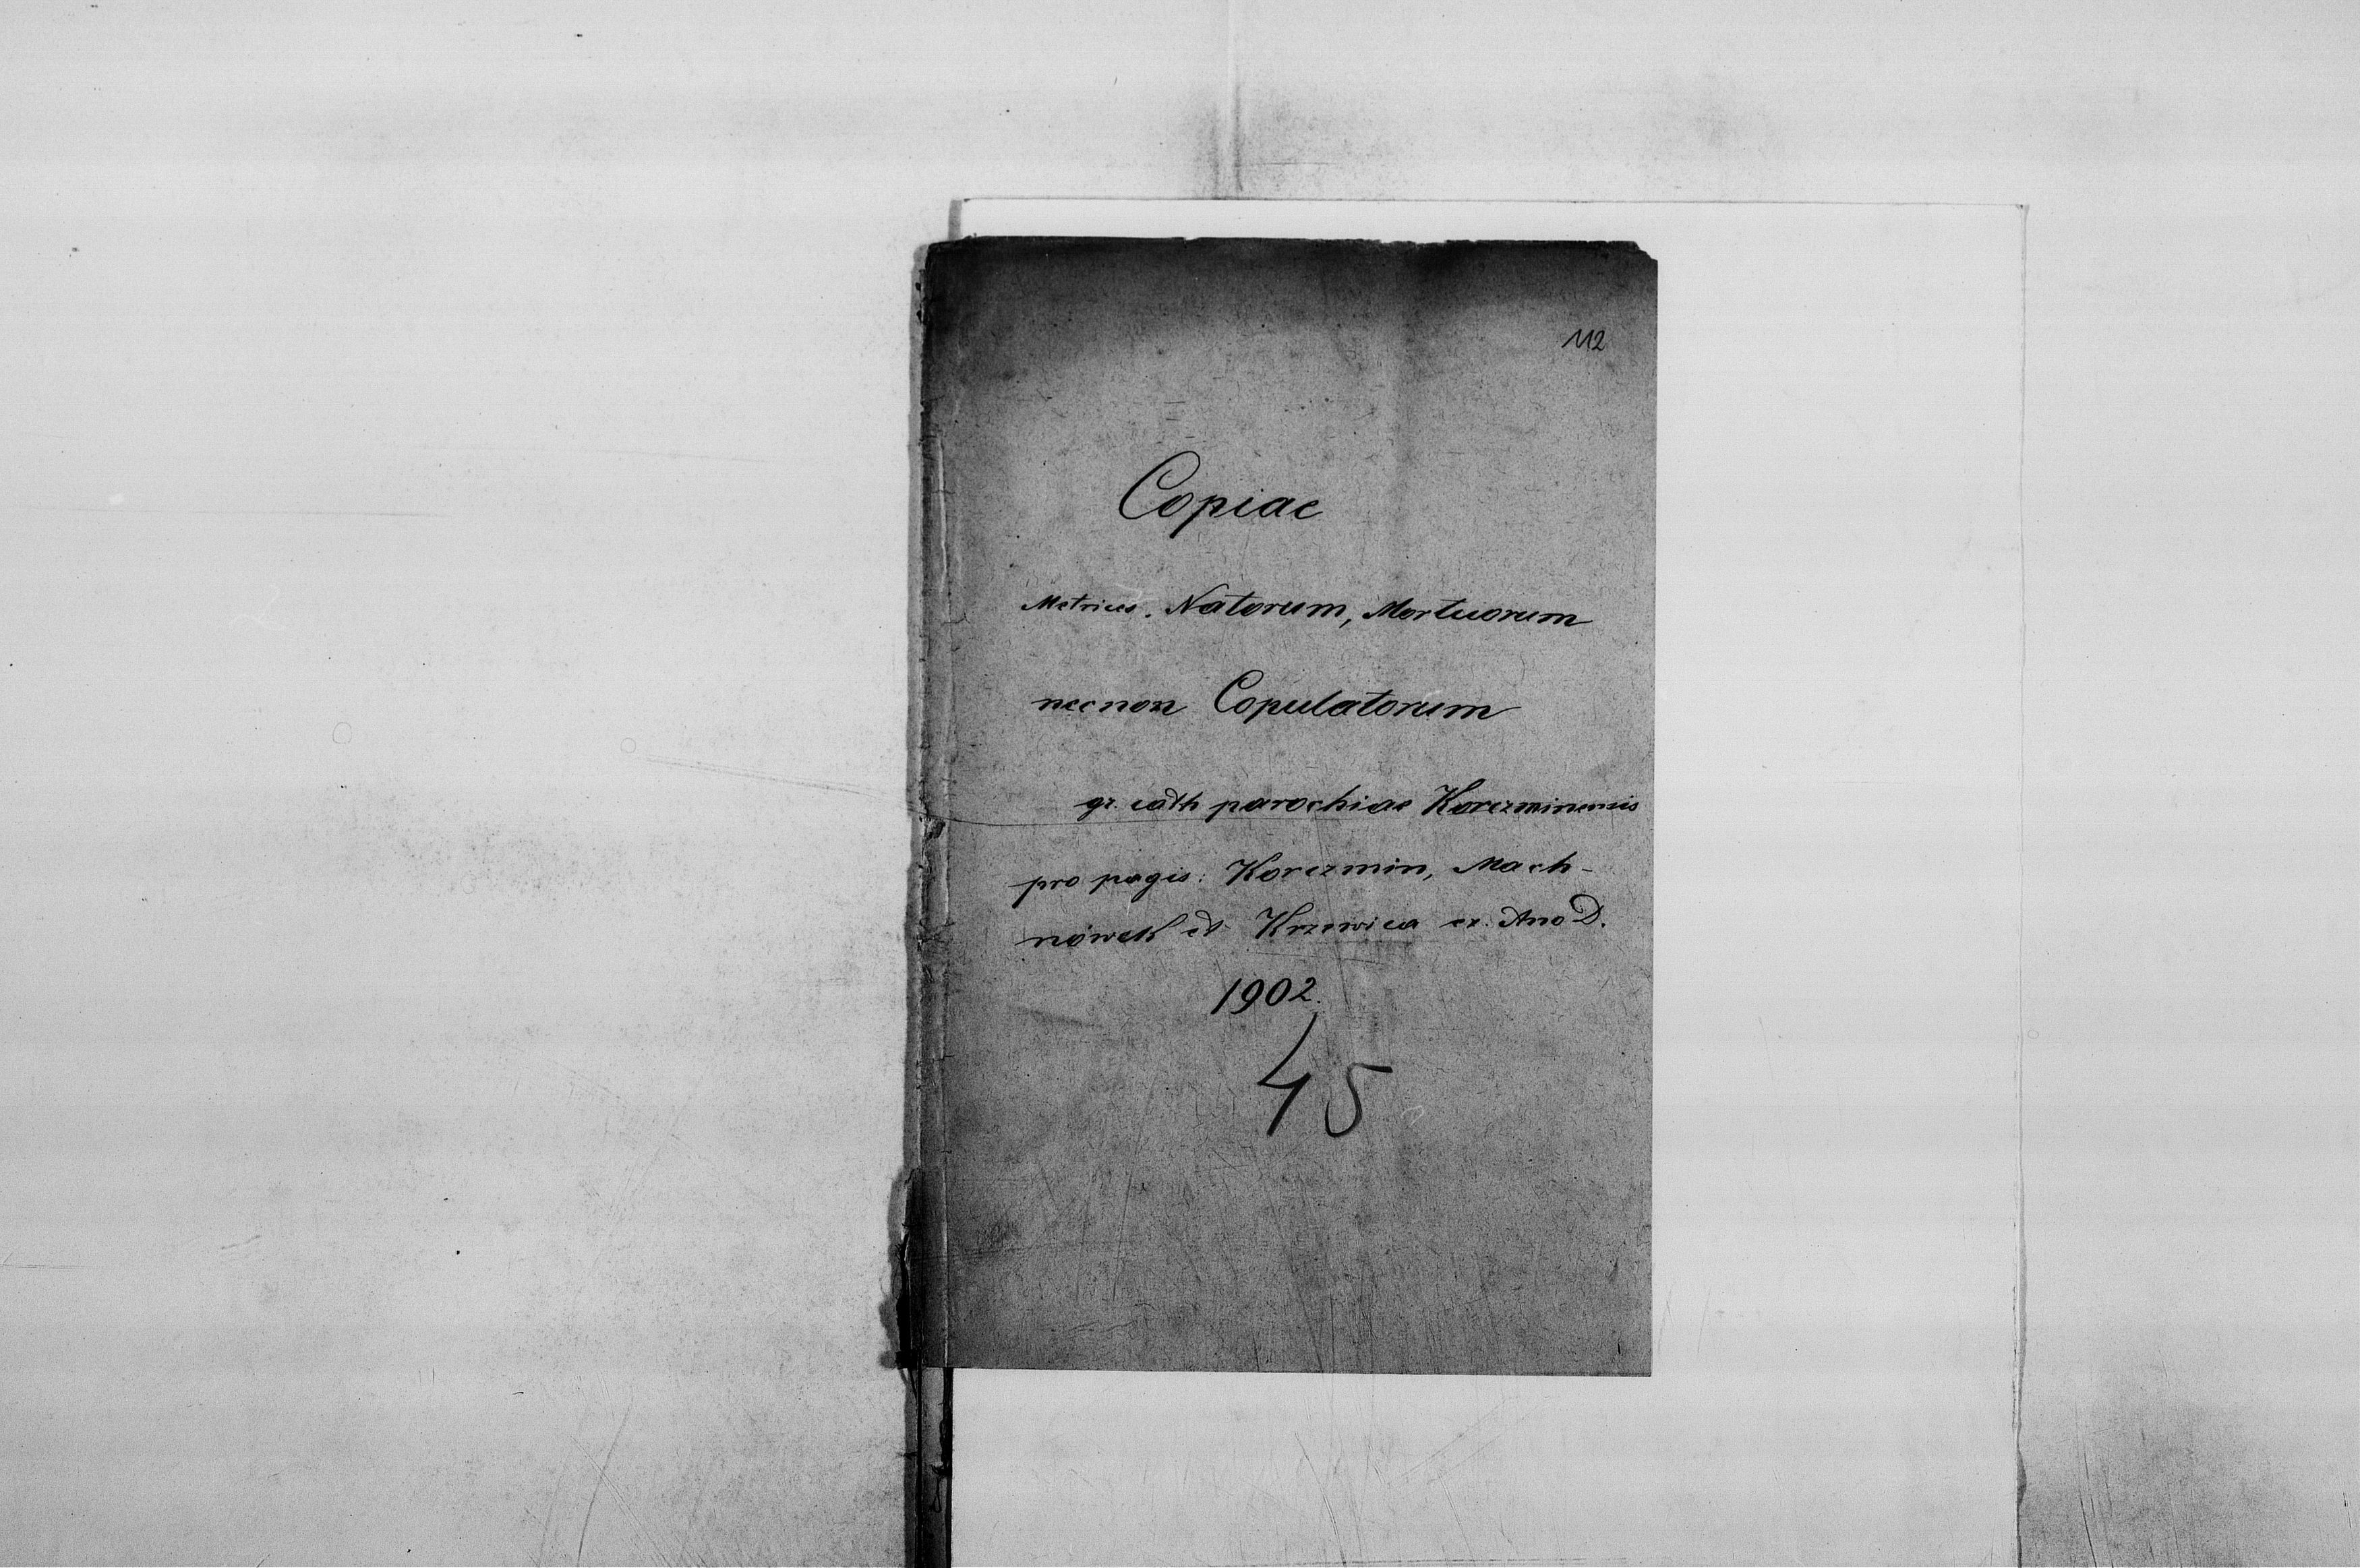 112
Copiae
Metrices. Natorum, Mortuorum
necnon Copulatorum
gr. cath parochiae Korczminensis
pro pagis: Korczmin, Mach-
nówek et Krzewica ex. Ano D.
1902.
45